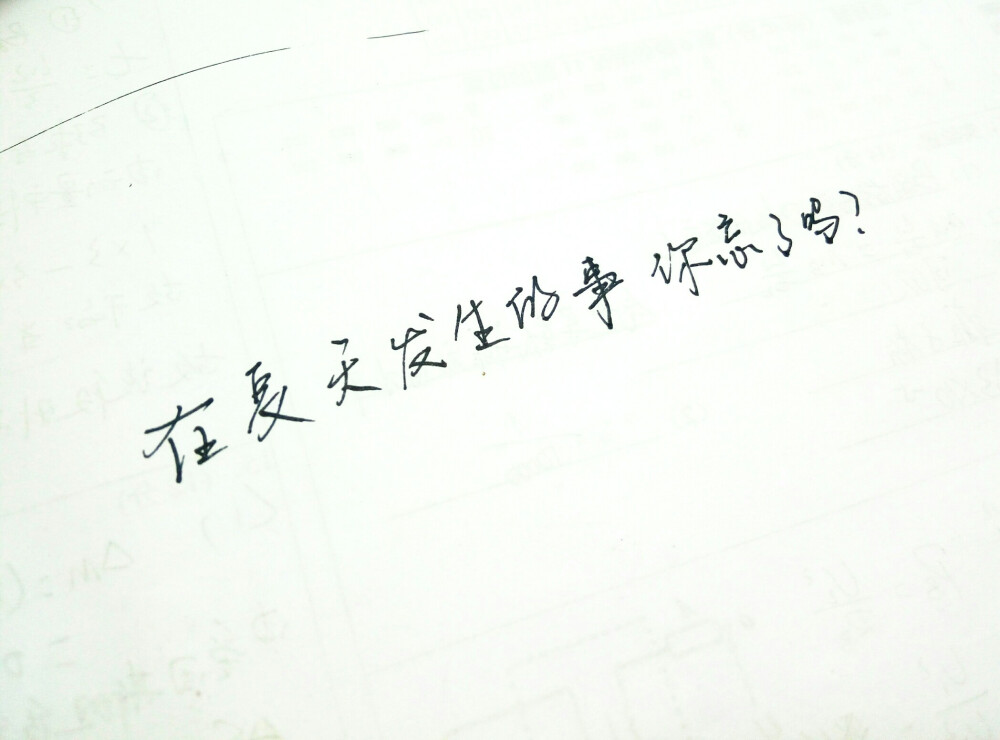 在夏天发生的事 你忘了吗?